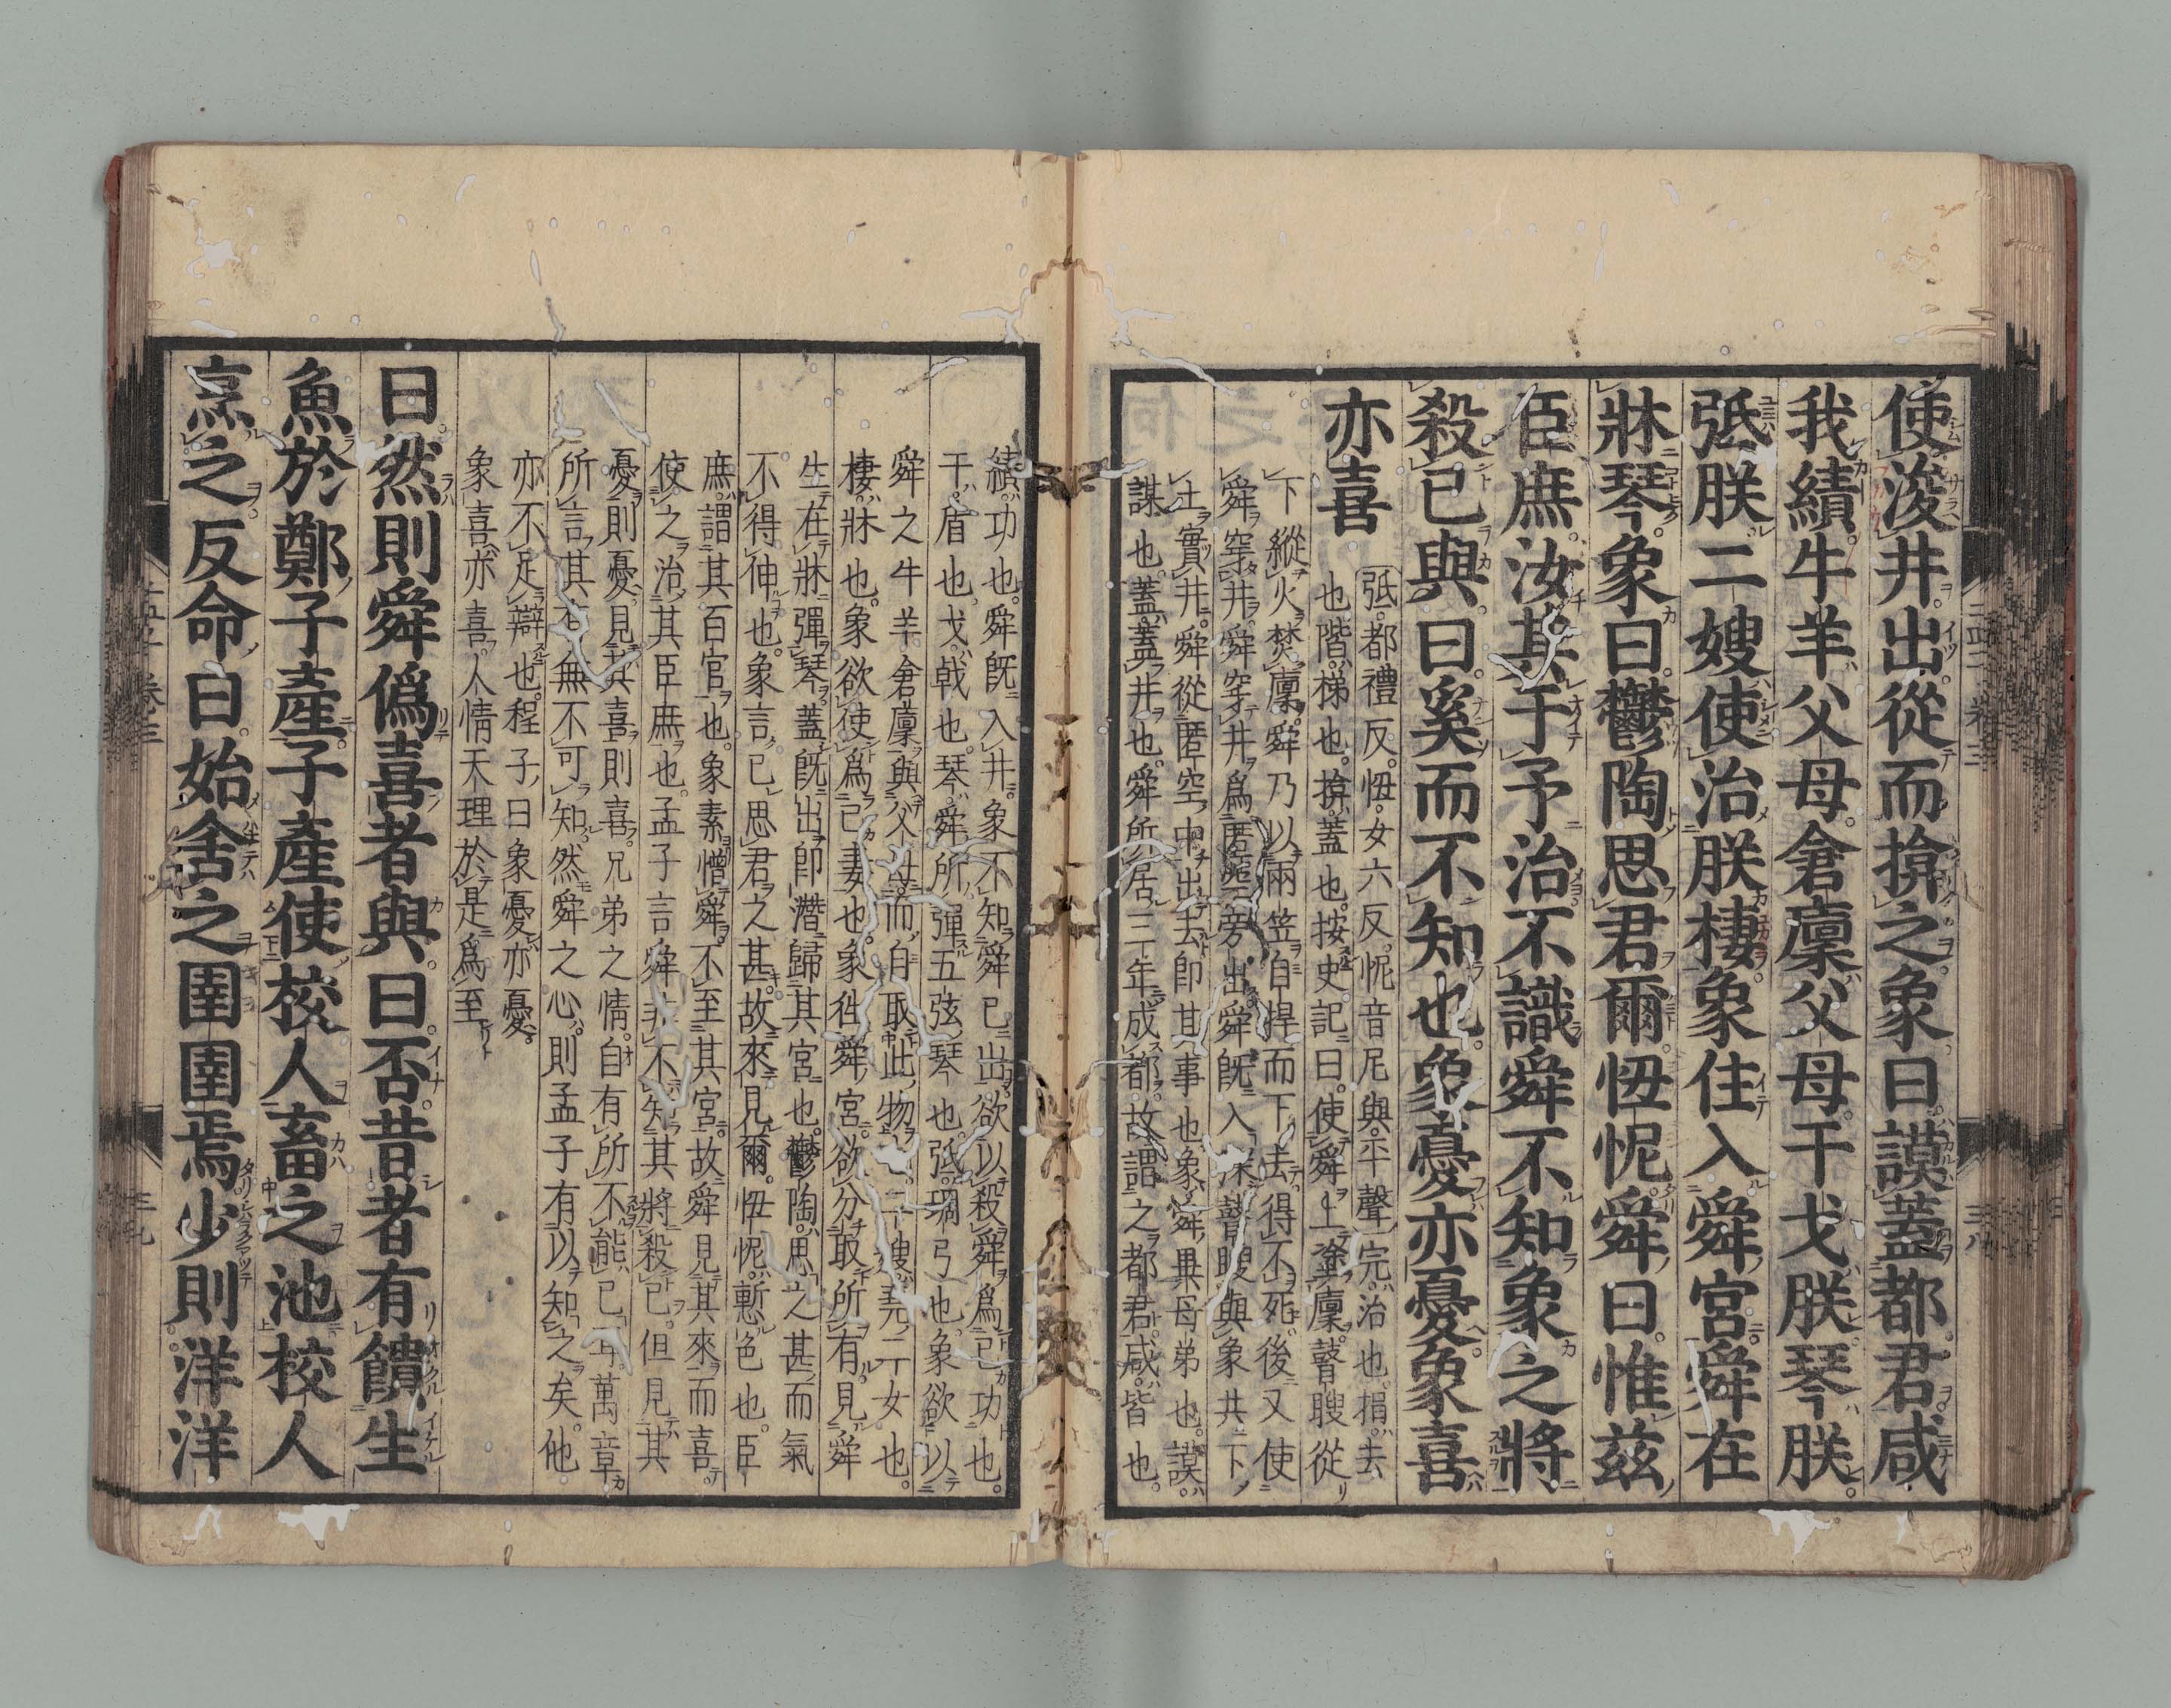 使浚井出從而揜之象曰謨蓋都君咸
我績牛羊父母倉廩父母干戈朕琴朕
弤朕二嫂使治朕棲象往入舜宮舜在
牀琴象曰鬱陶思君爾忸怩舜曰惟兹
臣庶汝其于予治不識舜不知象之將
殺已與曰奚而不知也象憂亦憂象喜
亦喜
弤都禮反忸女六反怩音尼與平聲完治也捐去
也階梯也揜蓋也按史記曰使舜上塗廩瞽瞍從
下縱火焚廩舜乃以兩笠自捍而下去得不死後又使
舜穿井舜穿井爲匿空旁出舜既入深瞽瞍與象共下
土實井舜從匿空中出去即其事也象舜異母弟也謨
謀也蓋蓋井也舜所居三年成都故謂之都君咸皆也
績功也舜既入井象不知舜已出欲以殺舜爲己功也
干盾也戈戟也琴舜所彈五弦琴也弤琱弓也象欲以
舜之牛羊倉廩與父母而自取此物二嫂堯二女也
棲牀也象欲使爲己妻也象往舜宮欲分取所有見舜
生在牀彈琴蓋既出即潛歸其宮也鬱陶思之甚而氣
不得伸也象言己思君之甚故來見爾忸怩慙色也臣
庶謂其百官也象素憎舜不至其宮故舜見其來而喜
使之治其臣庶也孟子言舜非不知其將殺已但見其
憂則憂見其喜則喜兄弟之情自有所不能已耳萬章
所言其有無不可知然舜之心則孟子有以知之矣他
亦不足辯也程子曰象憂亦憂
象喜亦喜人情天理於是爲至
曰然則舜僞喜者與曰否昔者有饋生
魚於鄭子產子產使校人畜之池校人
烹之反命曰始舍之圉圉焉少則洋洋